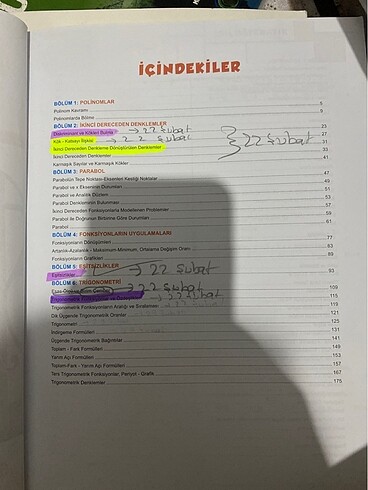 İÇİNDEKİLER
BÖLÜM 1: POLİNOMLAR
Polinom Kavramı 5
Polinomlarda Bölme 9
BÖLÜM 2: İKİNCİ DERECEDEN DENKLEMLER
Diskriminant ve Kökleri Bulma → 22 Şubat 23
Kök - Katsayı İlişkisi → 22 Şubat 27
22 Şubat
İkinci Dereceden Denkleme Dönüştürülen Denklemler 31
İkinci Dereceden Denklemler 33
Karmaşık Sayılar ve Karmaşık Kökler 41
BÖLÜM 3: PARABOL
Parabolün Tepe Noktası-Eksenleri Kestiği Noktalar 47
Parabol ve x Ekseninin Durumları 51
Parabol ve Analitik Düzlem 53
Parabol Denkleminin Bulunması
İkinci Dereceden Fonksiyonlarla Modellenen Problemler 57
Parabol ile Doğrunun Birbirine Göre Durumları 59
Parabol 61
BÖLÜM 4: FONKSİYONLARIN UYGULAMALARI
Fonksiyonların Dönüşümleri 77
Artanlık-Azalanlık - Maksimum-Minimum, Ortalama Değişim Oranı 83
Fonksiyonların Grafiği 89
BÖLÜM 5: EŞİTSİZLİKLER
Eşitsizlikler → 22 Şubat 93
BÖLÜM 6: TRİGONOMETRİ
→ 22 Şubat 109
→ 22 Şubat 115
Trigonometrik Fonksiyonların Aralığı ve Sıralaması 119
Dik Üçgende Trigonometrik Oranlar 121
Trigonometri 125
İndirgeme Formülleri 131
Üçgende Trigonometrik Bağıntılar 141
Toplam - Fark Formülleri 149
Yarım Açı Formülleri 153
Toplam-Fark - Yarım Açı Formülleri 157
Ters Trigonometrik Fonksiyonlar, Periyot - Grafik 167
Trigonometrik Denklemler 175